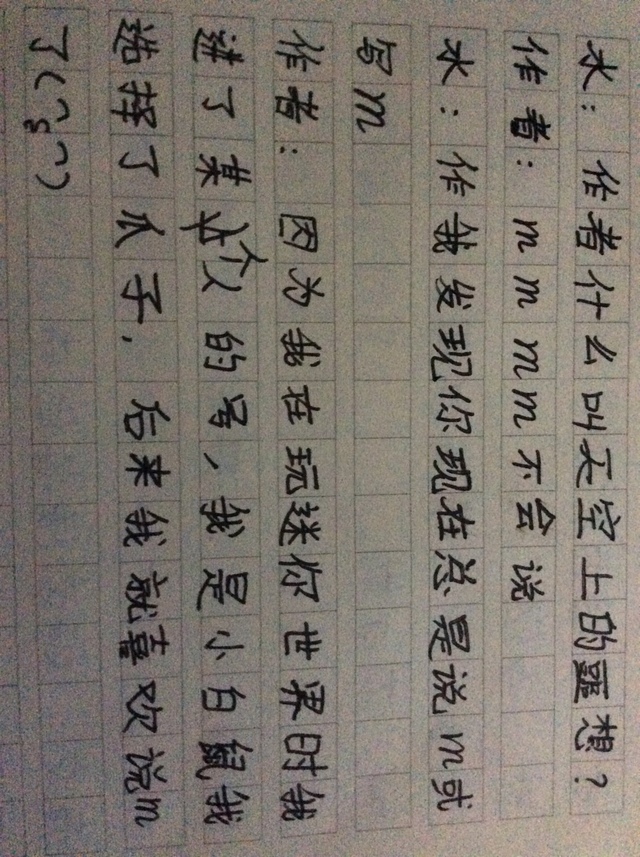 水：作者什么叫天空上的噩想？
作者：mmmm不会说
水：作俄发现你现在总是说m或
写m
作者：因为我在玩迷你世界时俄
进了某个人的号，我是小白鼠俄
选择了瓜子，后来俄就喜欢说m
了(